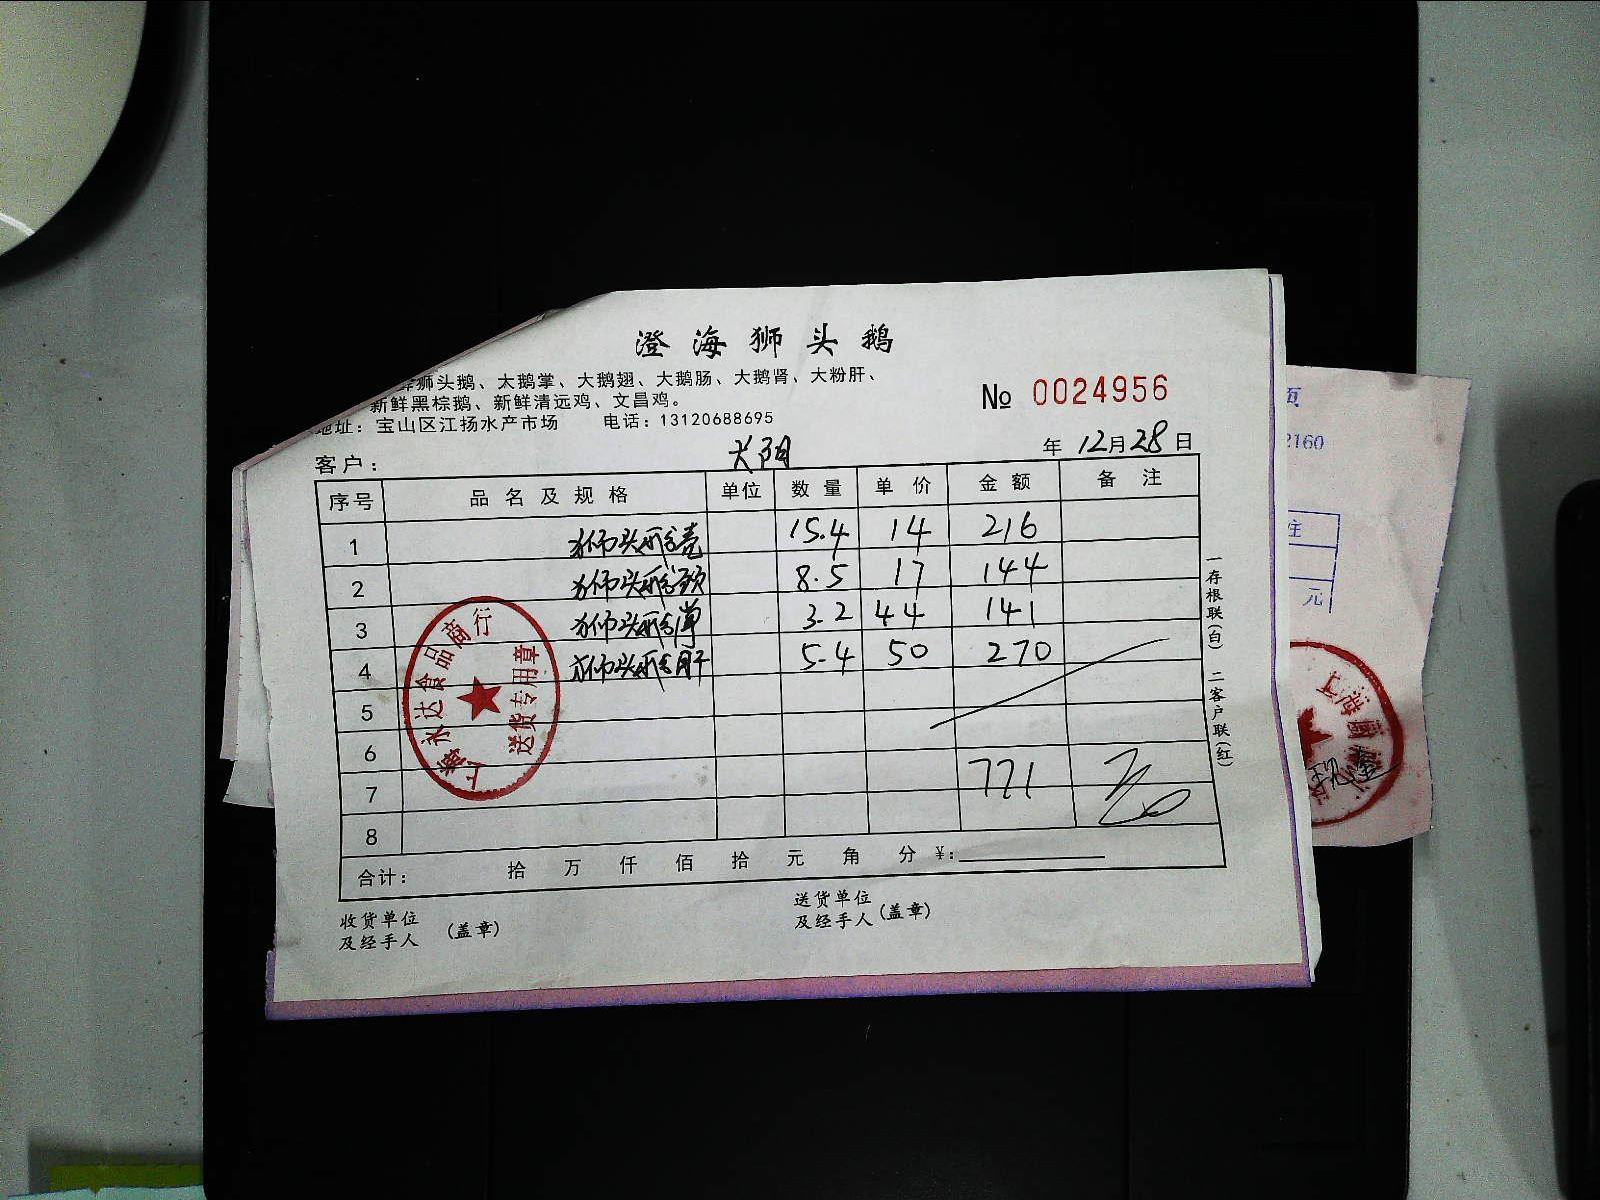 澄海狮头鹅
狮头鹅、大鹅掌、大鹅翅、大鹅肠、大鹅肾、大粉肝、
新鲜黑棕鹅、新鲜清远鸡、文昌鸡。
№ 0024956
地址：宝山区江扬水产市场 电话：13120688695
客户： 年 12月28日
序号 品名及规格 单位 数量 单价 金额 备注
1 狮头鹅壳 15.4 14 216
2 狮头鹅颈 8.5 17 144
3 狮头鹅 3.2 44 141
4 狮头鹅肝 5.4 50 270
5
6
7 771
8
合计： 拾 万 仟 佰 拾 元 角 分 ¥：
收货单位
及经手人 (盖章)
送货单位
及经手人 (盖章)
一存根联(白) 二客户联(红)
上海永达食品商行
送货专用章
页
2160
注
元
上海